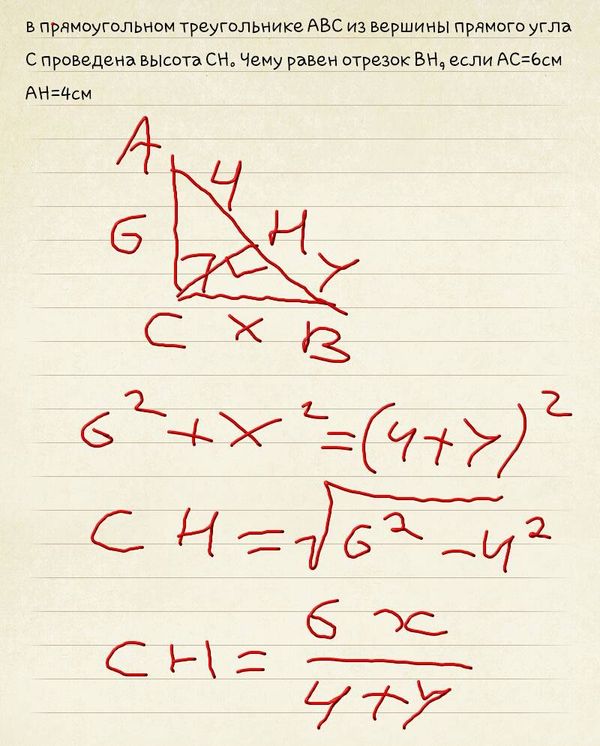 в прямоугольном треугольнике ABC из вершины прямого угла
С проведена высота CH. Чему равен отрезок BH, если AC=6см
AH=4см
A
4
6
H
y
C x B
6² + x² = (4+y)²
CH = √6² - 4²
CH = 6 x
4+y